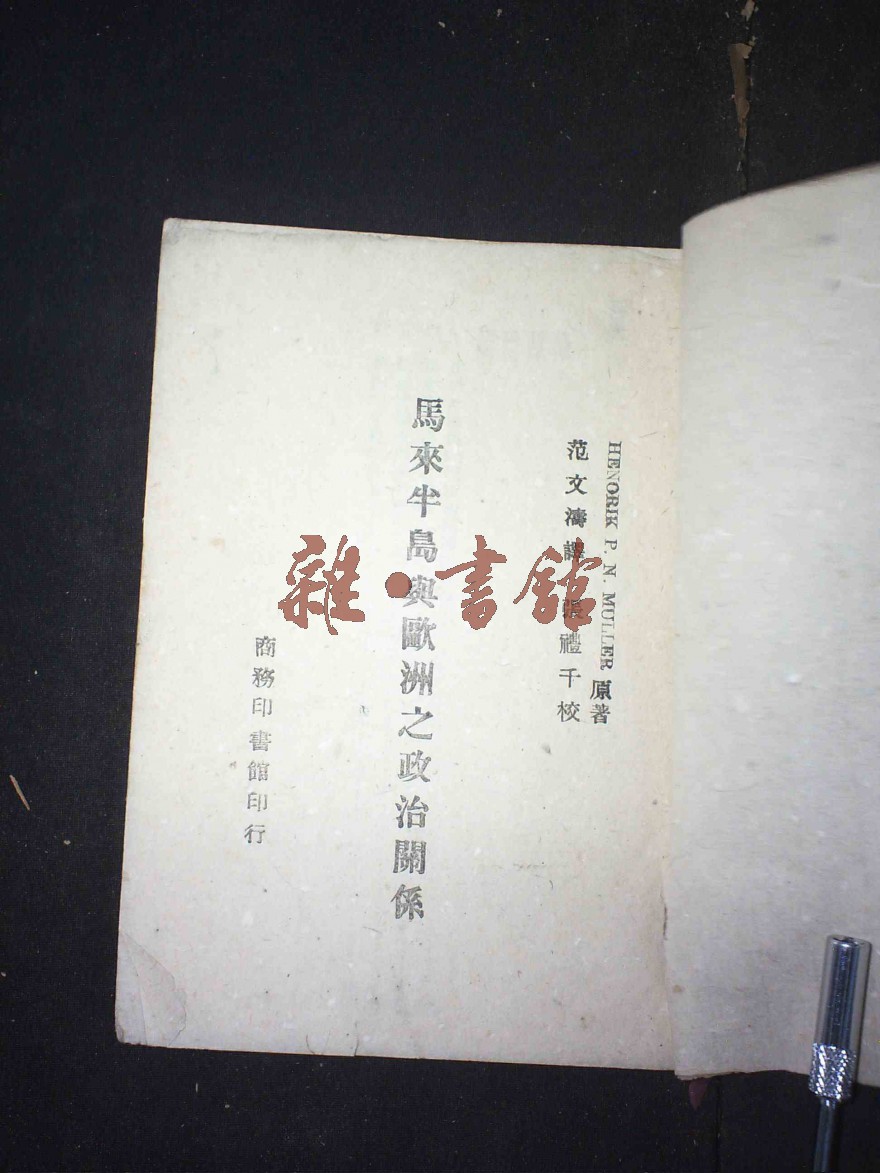 HENORIK P. N. MULLER 原著
范文濤譯 張禮千校
馬來半島與歐洲之政治關係
商務印書館印行
雜·書館